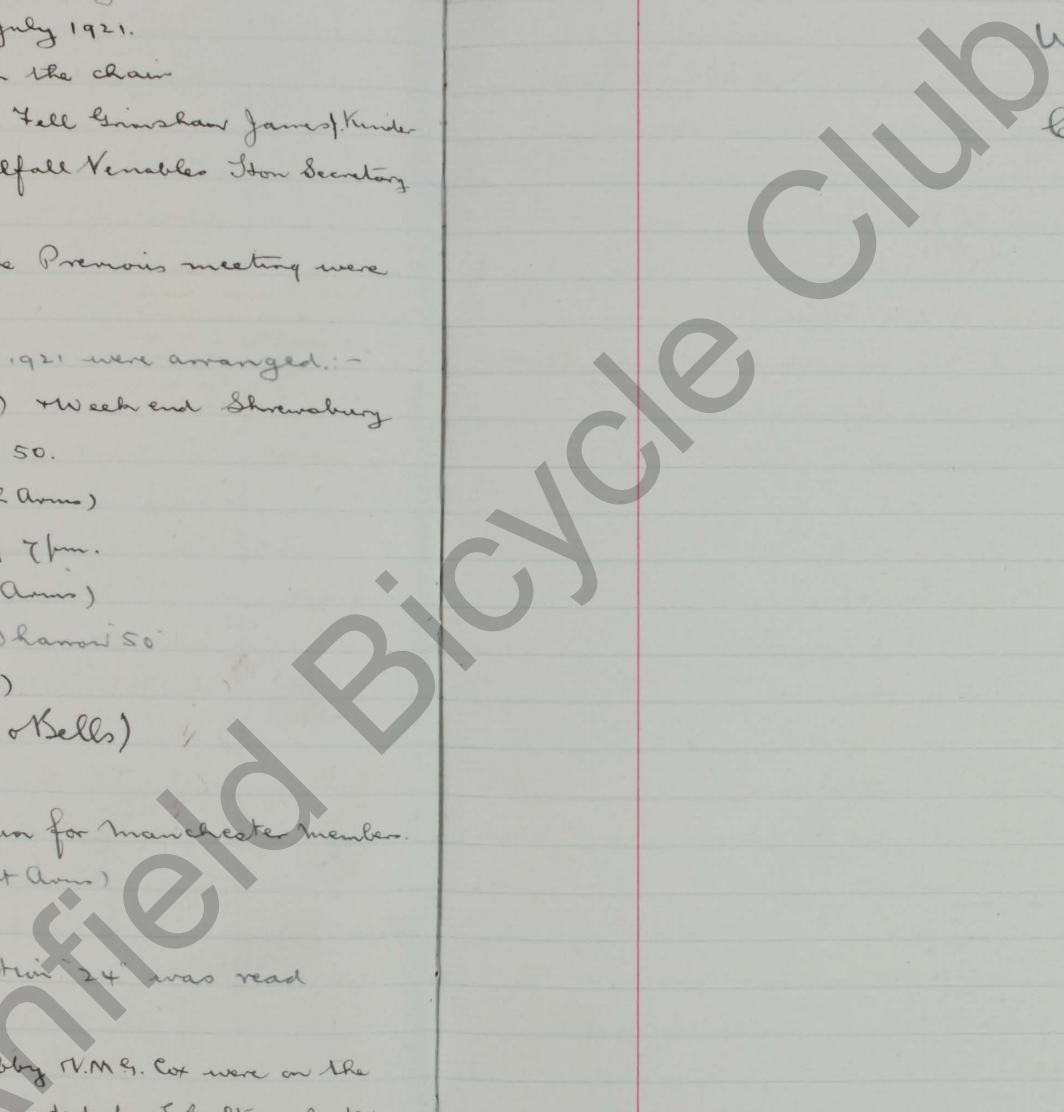 July 1921.
the chair
Fell Grimshaw James J. Kinder
Venables Hon Secretary
Previous meeting were
1921 were arranged:-
) + Week end Shrewsbury
50.
Arms)
7 pm.
Arms)
50
)
Bells)
for Manchester Members.
Arms)
"24" was read
N.M G. Cox were on the
Anfield Bicycle Club